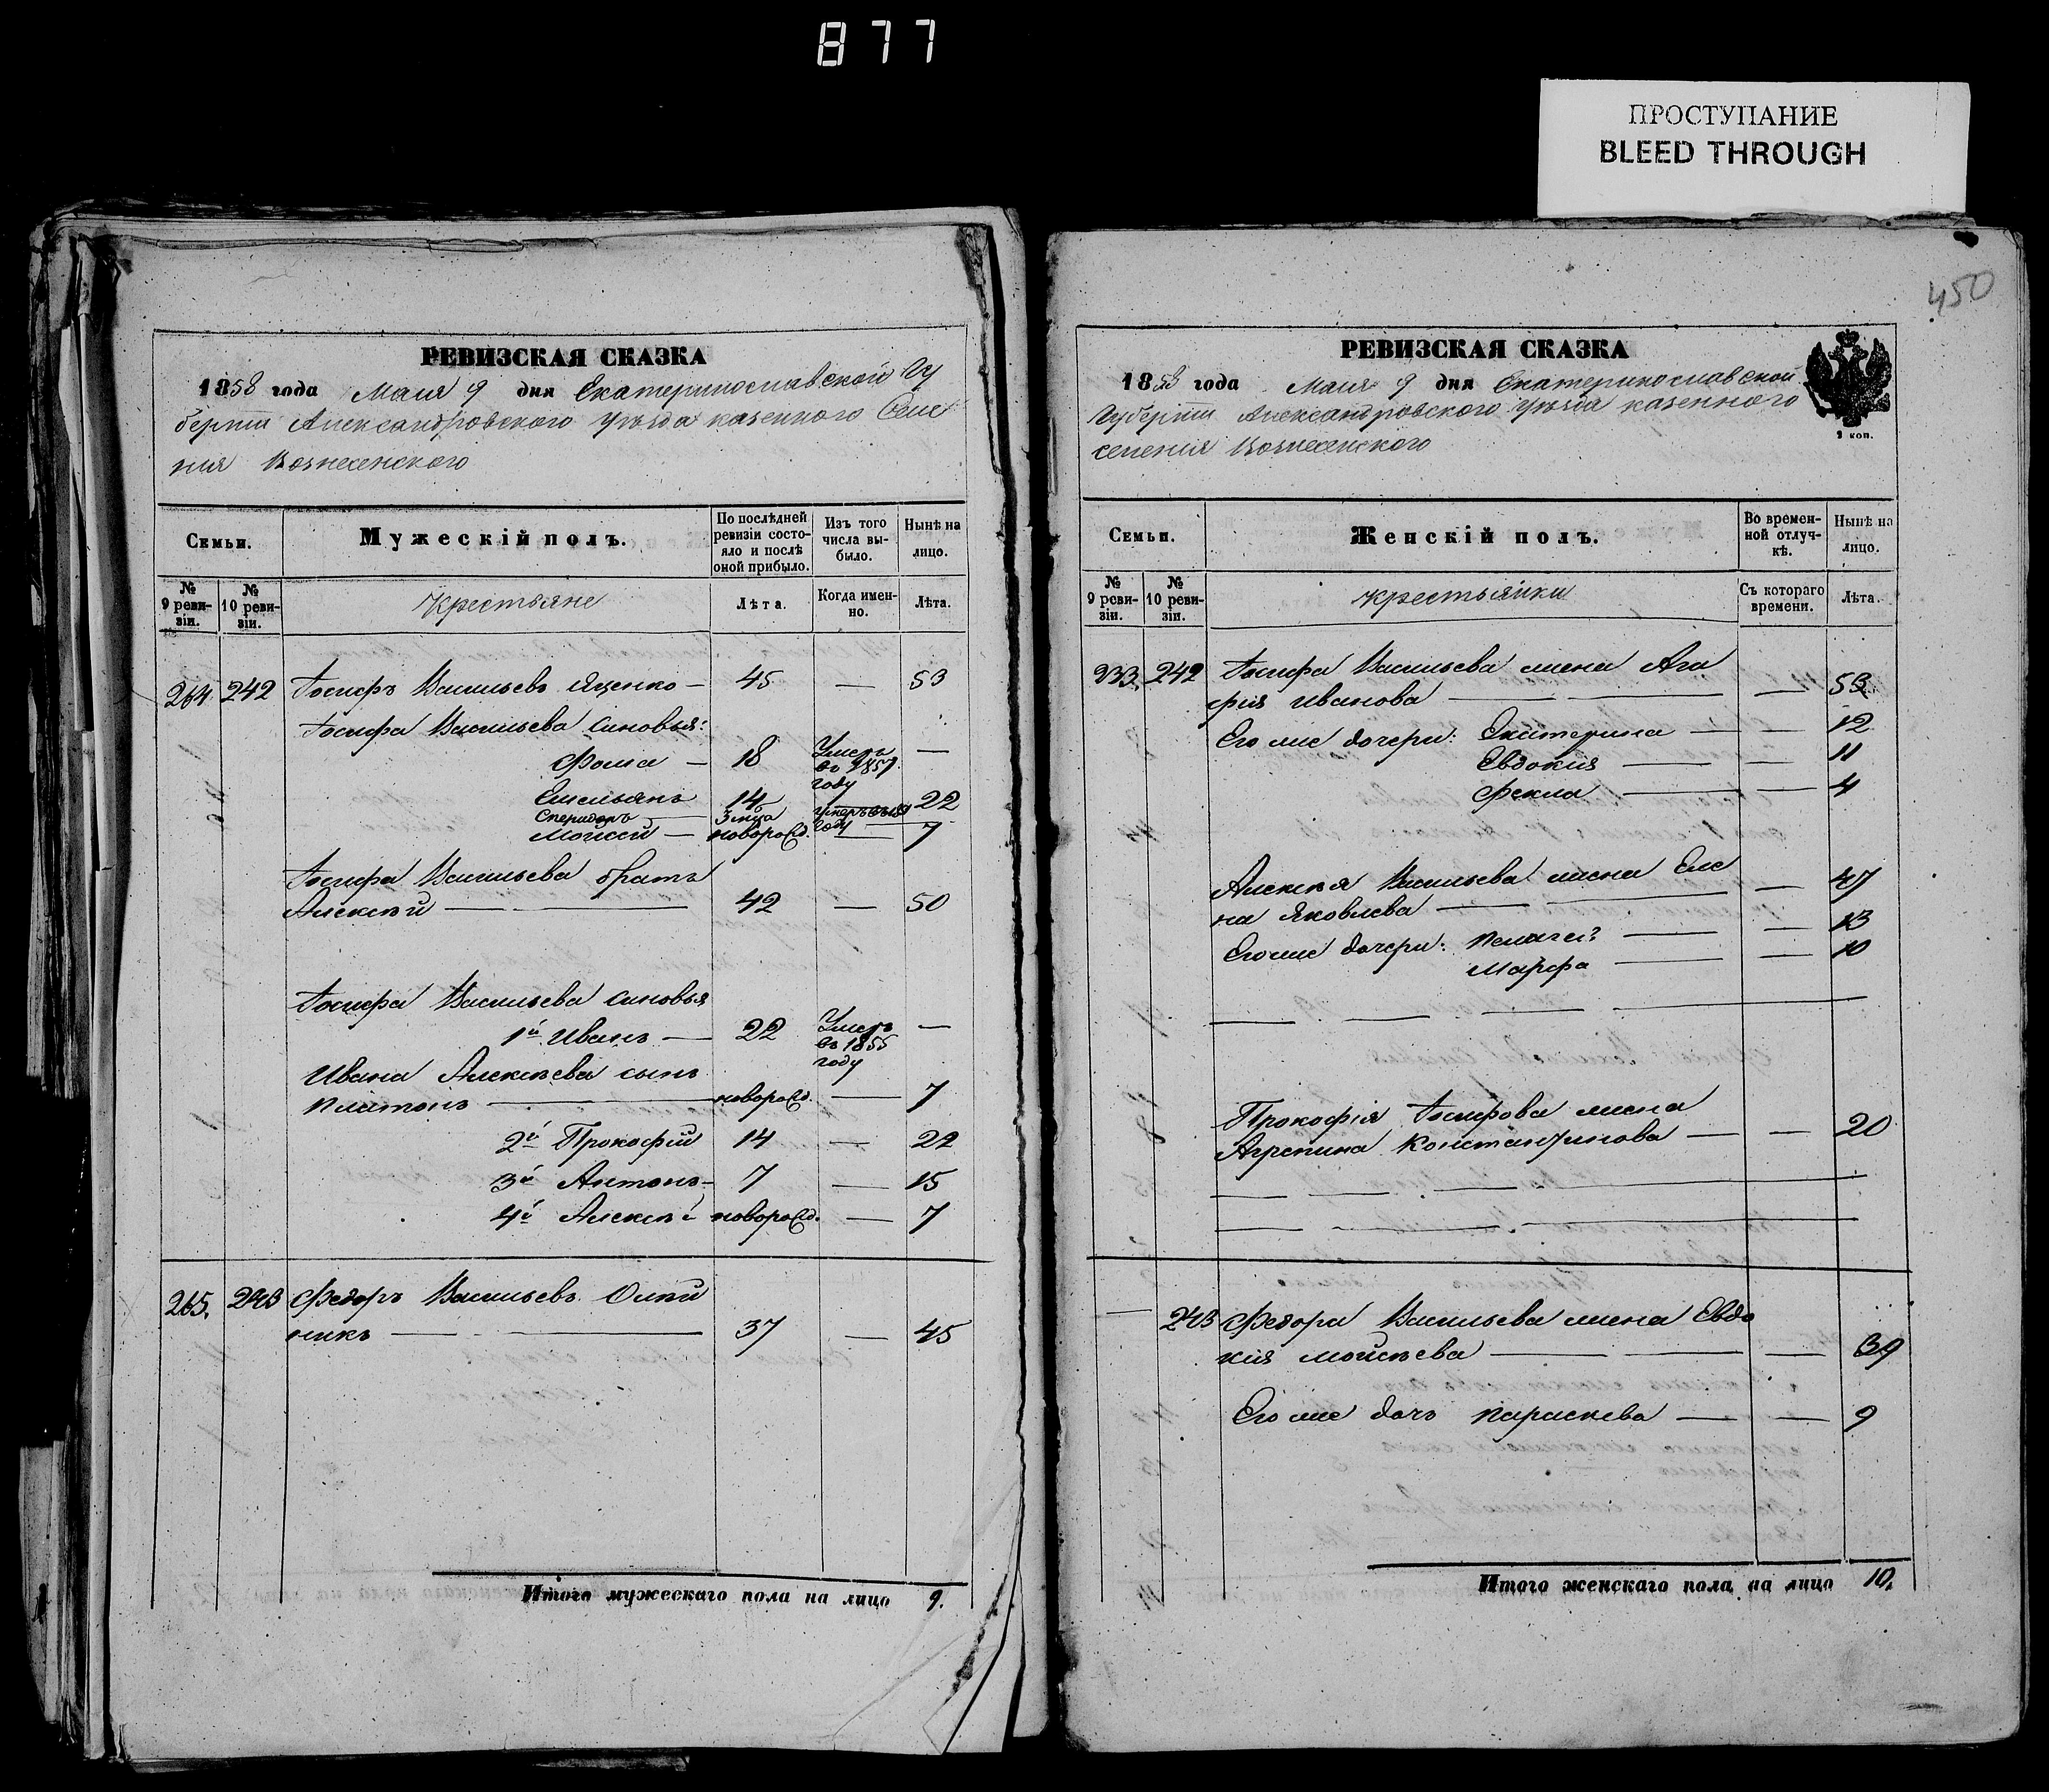 877
ПРОСТУПАНИЕ
BLEED THROUGH
450
РЕВИЗСКАЯ СКАЗКА
1858 года Маия 9 дня Екатеринославской Гу
берніи Александровского Уѣзда казенного Селе
нія Вознесенского
Семьи.
Мужескій полъ.
По послѣдней ревизіи состояло и послѣ оной прибыло.
Изъ того числа выбыло.
Нынѣ на лицо.
№ 9 ревизіи.
№ 10 ревизіи.
Крестьяне
Лѣта.
Когда именно.
Лѣта.
264. 242 Іосифъ Васильевъ Яценко — 45 — 53
Іосифа Васильева сыновья:
Фома — 18 Умеръ въ 1857 году —
Емельянъ 14 — 22
Спиридонъ — 3 м-ца умеръ въ году —
Мойсей — новорожд. — 7
Іосифа Васильева братъ
Алексѣй — 42 — 50
Іосифа Васильева сыновья
1й Иванъ — 22 Умеръ въ 1855 году —
Ивана Алексѣева сынъ
Платонъ — новорожд. — 7
2й Прокофій 14 — 22
3й Антонъ — 7 — 15
4й Алексѣй новорожд. — 7
265. 243 Федоръ Васильевъ Олей
никъ — 37 — 45
Итого мужескаго пола на лицо 9.
РЕВИЗСКАЯ СКАЗКА
1858 года Маия 9 дня Екатеринославской
Губерніи Александровского Уѣзда казенного
селенія Вознесенского
2 коп.
Семьи.
Женскій полъ.
Во временной отлучкѣ.
Нынѣ на лицо.
№ 9 ревизіи.
№ 10 ревизіи.
крестьянки
Съ котораго времени.
Лѣта.
233. 242 Іосифа Васильева жена Ага
фія Иванова — — 53
Его же дочери: Екатерина — — 12
Евдокія — — 11
Фекла — — 4
Алексея Васильева жена Еле
на Яковлева — — 47
Его же дочери: Пелагея — — 13
Марфа — — 10
Прокофія Іосифова жена
Агрепина Константинова — — 20
— 243 Федора Васильева жена Евдо
кія Мойсѣева — — 39
Его же дочь Параскева — — 9
Итого женскаго пола на лицо 10.